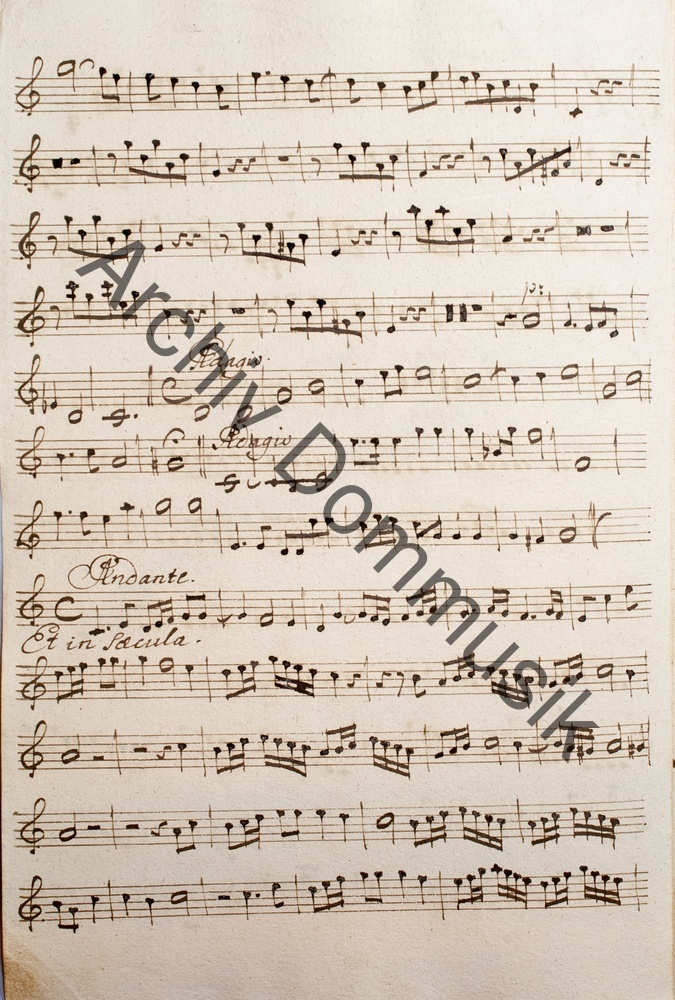 p:
Adagio.
Adagio
Andante.
Et in sæcula.
Archiv Dommusik